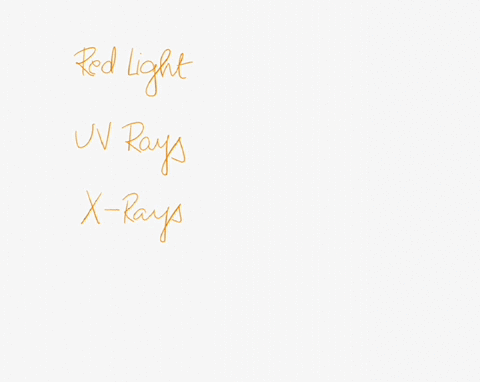 Red Light
UV Rays
X-Rays